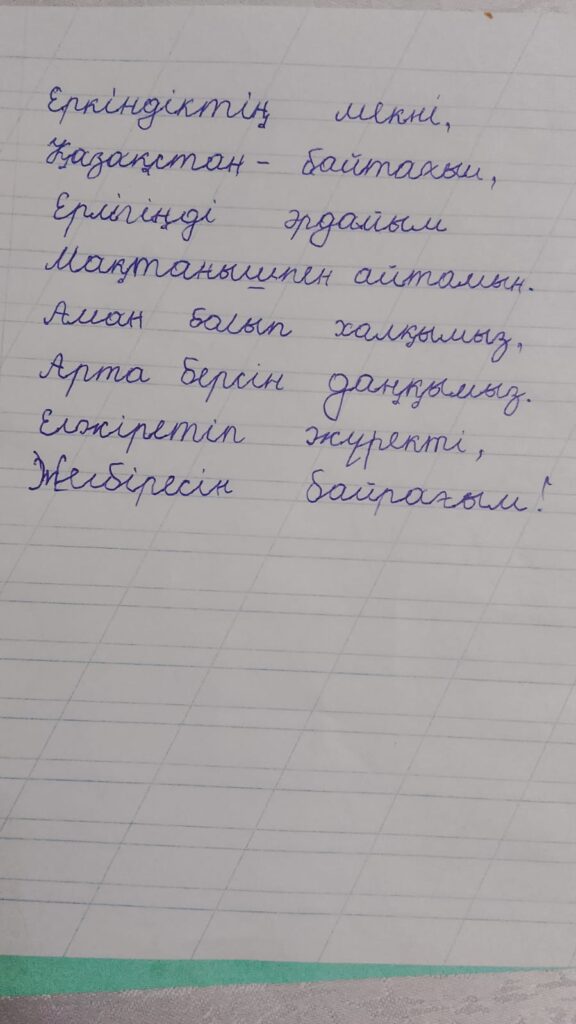 Еркіндіктің мекні,
Қазақстан - байтағым,
Ерлігіңді әрдайым
Мақтанышпен айтамын.
Аман болып халқымыз,
Арта берсін даңқымыз.
Елжіретіп жүректі,
Желбіресін байрағым!